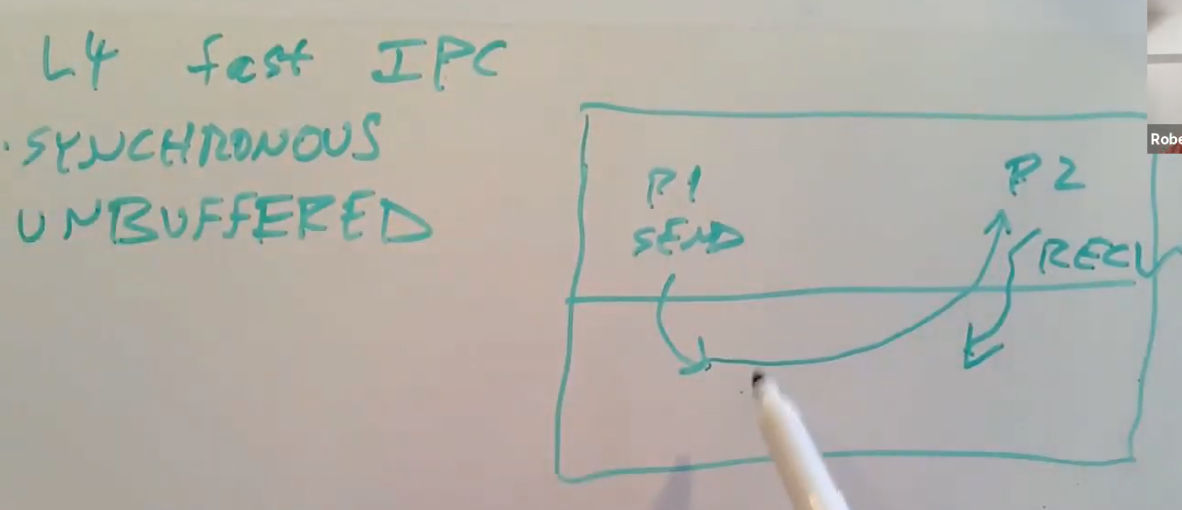 L4 fast IPC
· SYNCHRONOUS
UNBUFFERED
P1
SEND
P2
RECV
Robe